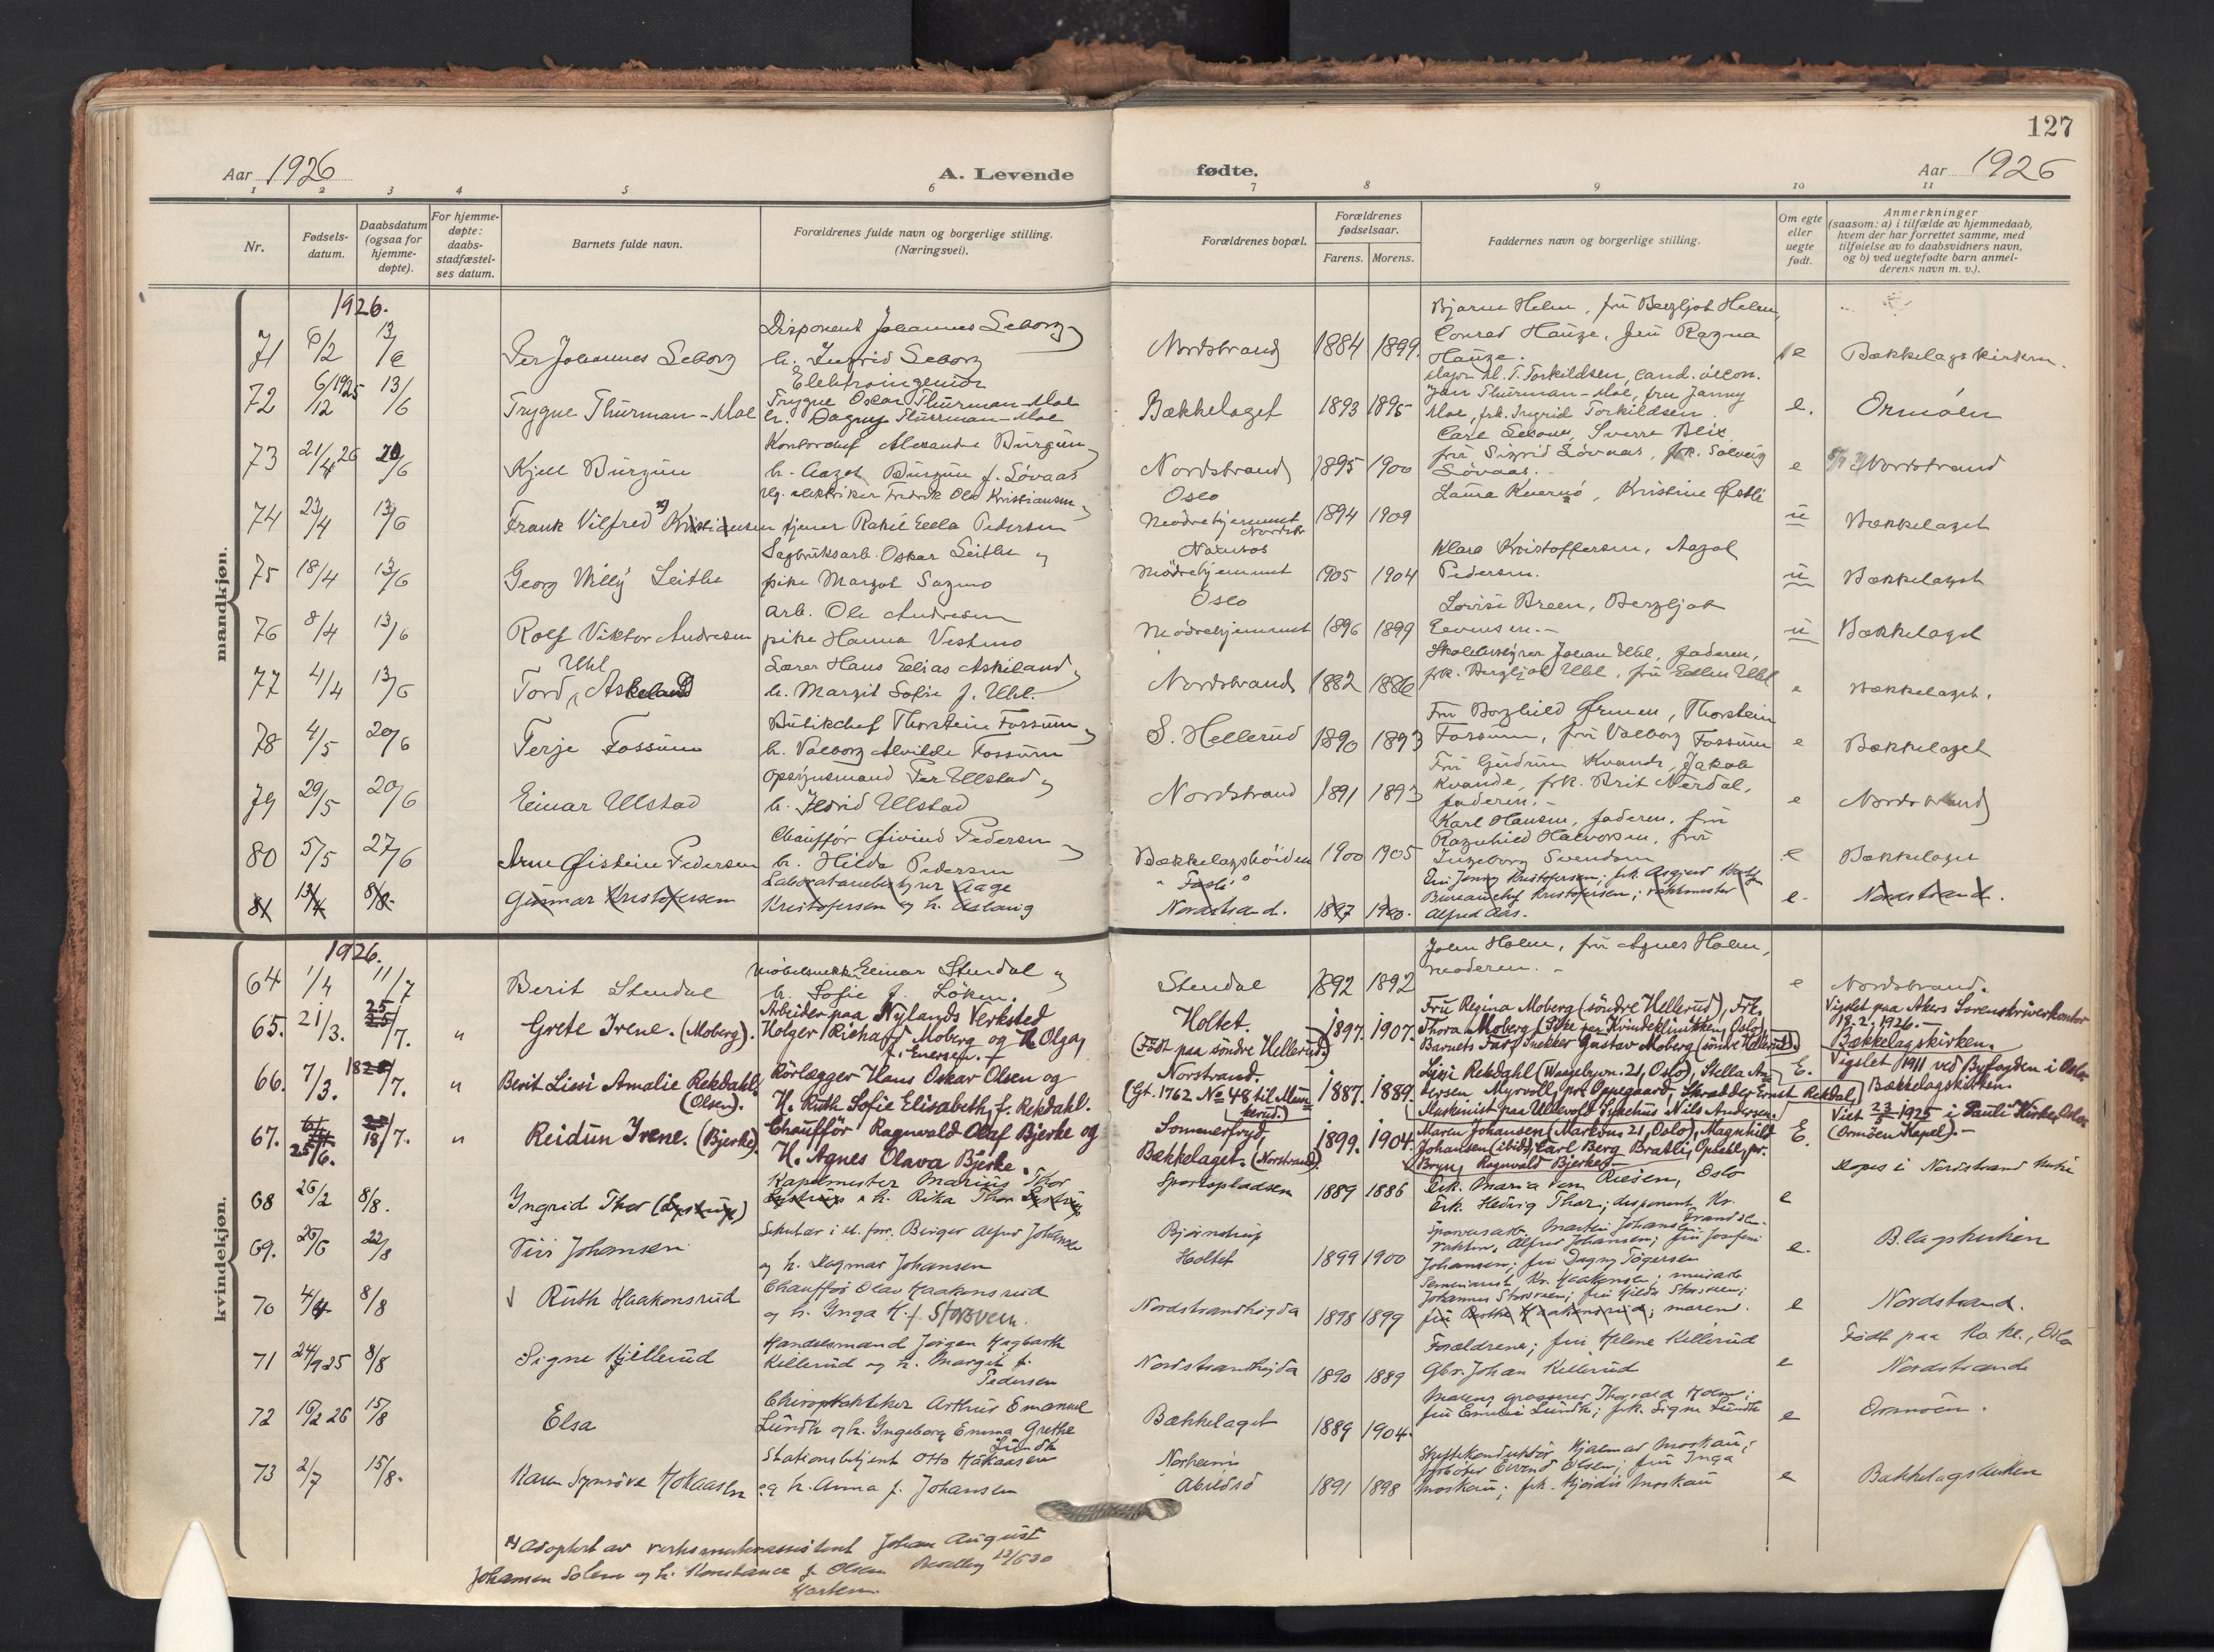 127
Aar 1926
A. Levende
fødte.
Aar 1926
1 2 3 4 5 6 7 8 9 10 11
Nr.
Fødsels-
datum.
Daabsdatum
(ogsaa for
hjemme-
døpte).
For hjemme-
døpte:
daabs-
stadfæstel-
ses datum.
Barnets fulde navn.
Forældrenes fulde navn og borgerlige stilling.
(Næringsvei).
Forældrenes bopæl.
Forældrenes
fødselsaar.
Farens. Morens.
Faddernes navn og borgerlige stilling.
Om egte
eller
uegte
født.
Anmerkninger
(saasom: a) i tilfælde av hjemmedaab,
hvem der har forrettet samme, med
tilføielse av to daabsvidners navn,
og b) ved uegtefødte barn anmel-
derens navn m. v.).
mandkjøn.
1926.
Bjarne Holm, fru Bergljot Holm,
Disponent Johannes Seborg og
Conrad Hauge, fru Ragna
71 6/2 13/6 Per Johannes Seborg h. Ingrid Seborg Nordstrand 1884 1899 Hauge. e Bækkelagskirken.
Elektroingeniör
Major M. T. Torkildsen, cand. oecon.
72 6/12 1925 13/6 Trygve Thurman-Moe Trygve Oscar Thurman-Moe Bækkelaget 1893 1895 Thurman-Moe, fru Jenny e. Ormöen
h. Dagny Thurman-Moe
Moe, frk. Ingrid Torkildsen.
Kontorchef Burgun og
Sverre Blix,
73 21/4 26 20/6 Kjell Burgun h. Aagot Burgun f. Lövaas Nordstrand 1895 1900 fru Sigrid Lövaas, frk. Solveig e Nordstrand
Lövaas.
elektriker Fredrik Olav Kristiansen og
Oslo
Kristine Østli
74 23/4 13/6 Frank Vilfred x) Kristiansen Rakel Ella Pedersen Mödrehjemmet Nordstr. 1894 1909 u Bækkelaget
Sagbruksarb. Oskar Leithe og
Namsos
Klara Kristoffersen, Aagot
75 18/4 13/6 Georg Willy Leithe pike Margot Sagmo Mödrehjemmet 1905 1904 Pedersen. u Bækkelaget
arb. Ole Andresen
Oslo
Lovise Breen, Bergljot
76 8/4 13/6 Rolf Viktor Andresen pike Hanna Vestmo Mödrehjemmet 1896 1899 Evensen. u Bækkelaget
Uhl
Lærer Hans Elias Askeland og
Skolebestyrer Johan Uhl, faderen,
77 4/4 13/6 Tord Askeland h. Margit Sofie f. Uhl. Nordstrand 1882 1886 frk. Bergljot Uhl, fru Ellen Uhl e Bækkelaget.
Butikchef Thorstein Fossum og
Fru Borghild Thorstein
78 4/5 20/6 Terje Fossum h. Valborg Alvilde Fossum S. Hellerud 1890 1893 Fossum, fru Valborg Fossum e Bækkelaget
Opsynsmand Per Ulstad og
Fru Gudrun Kvande, Jakob
79 29/5 20/6 Einar Ulstad h. Ulstad Nordstrand 1891 1893 Kvande, frk. Brit Nerdal, e Nordstrand
faderen.
Chaufför Øivind Pedersen og
Karl Hansen, faderen, fru
80 5/5 27/6 Arne Øistein Pedersen h. Hilda Pedersen Bækkelagshöiden 1900 1905 Ragnhild Halvorsen, fru e Bækkelaget
Ingeborg Svendsen
Laboratoriebestyrer Aage
Fru Jenny Kristofersen; frk. Asgjerd
81 13/4 8/8 Gunnar Kristofersen Kristofersen og h. Aslaug Nordstrand. 1897 1900. Bureauchef Kristofersen; vaktmester e. Nordstrand.
Alfred Aas.
kvindekjøn.
1926.
John Holm, fru Agnes Holm,
64 1/4 11/7 Berit Stendal Einar Stendal og Stendal 1892 1892 moderen. e Nordstrand.
h. Sofie f. Löken.
65. 21/3. 25/7. " Grete Irene. (Moberg). Arbeider paa Nylands Verksted Holtet. 1897. 1907. Fru Regina Moberg (söndre Hellerud), Frk. Viglet paa Akers Sorenskriverkontor
Holger Richard Moberg og H. Olga, (Födt paa söndre Hellerud.) Thora Moberg (Pike paa Kvindeklinikken, Oslo), 18.2.1926.
f. Enersen. Barnets Far, Snekker Gustav Moberg (söndre Hellerud). Bækkelagskirken.
66. 7/3. 18/7. " Berit Lissi Amalie Rekdahl (Olsen). Rörlægger Hans Oskar Olsen og Norstrand. 1887. 1889. Lissi Rekdahl (21, Oslo), Stella An- E. Vigslet 1911 ved Byfogden i Oslo
H. Ruth Sofie Elisabeth, f. Rekdahl. (Gt. 1762 No 48 til Munkerud.) dersen, Myrvoll, pr. Oppegaard, Skrædder Ernst Rekdal, Bækkelagskirken.
Maskinist paa Ullevold Sykehus Nils Andersen.
67. 25/6. 18/7. " Reidun Irene. (Bjerke). Chaufför Ragnvald Olaf Bjerke og Sommerfryd, 1899. 1904. Maren Johansen (Markvn. 21, Oslo), Magnhild E. Viet 23/5 1925 i Pauli Kirke, Oslo.
H. Agnes Olava Bjerke. Bækkelaget. (Norstrand). Johansen (ibid), Carl Berg Brathli, Opsahl, pr. (Ormöen Kapel).
Bryn, Ragnvald Bjerke.
68 26/2 8/8. Ingrid Thor Kapelmester Marius Thor Sportspladsen 1889 1886 Frk. Maria von Riesen, Oslo e Nordstrand kirke
h. Rika Thor Frk. Hedvig Thor; disponent
69. 26/6 22/8 Johansen Birger Alfred Johansen Björnstrup 1899 1900 Martin Johansen e. B.lagskirken
og h. Dagmar Johansen Holtet Alfred Johansen; fru Josefine
Johansen; fru Dagny
70 4/4 8/8 Ruth Haakonsrud Chaufför Olav Haakonsrud Nordstrandhögda 1898 1899 fru Hilda e Nordstrand.
og h. Inga H. f. Storsveen. moren.
71 24/9 25 8/8 Signe Kjillerud Handelsmand Jörgen Hagbarth Nordstrandhögda 1890 1889 Forældrene; fru Helene Killerud e Født paa Oslo
Killerud og h. Margit f. Pedersen Gbr. Johan Killerud Nordstrand
72 16/2 26 15/8 Elsa Chiropraktiker Arthur Emanuel Bækkelaget 1889 1904. grosserer Thorvald Holm; e Ormöen.
Lundh og h. Ingeborg Emma Grethe Lundh fru Emilie Lundh; frk. Signe Lundh
73 2/7 15/8. Karen Synnöve Hokaasen Stationsbetjent Otto Hokaasen Norheim 1891 1898 Hjalmar Moskau; e Bækkelagskirken
og h. Anna f. Johansen Abildsö Olsen; fru Inga
Moskau; frk. Hjördis Moskau
x) Adoptert av Johan August
Johansen Solem og h. Konstance f. Olsen Bevilling 12/6 30